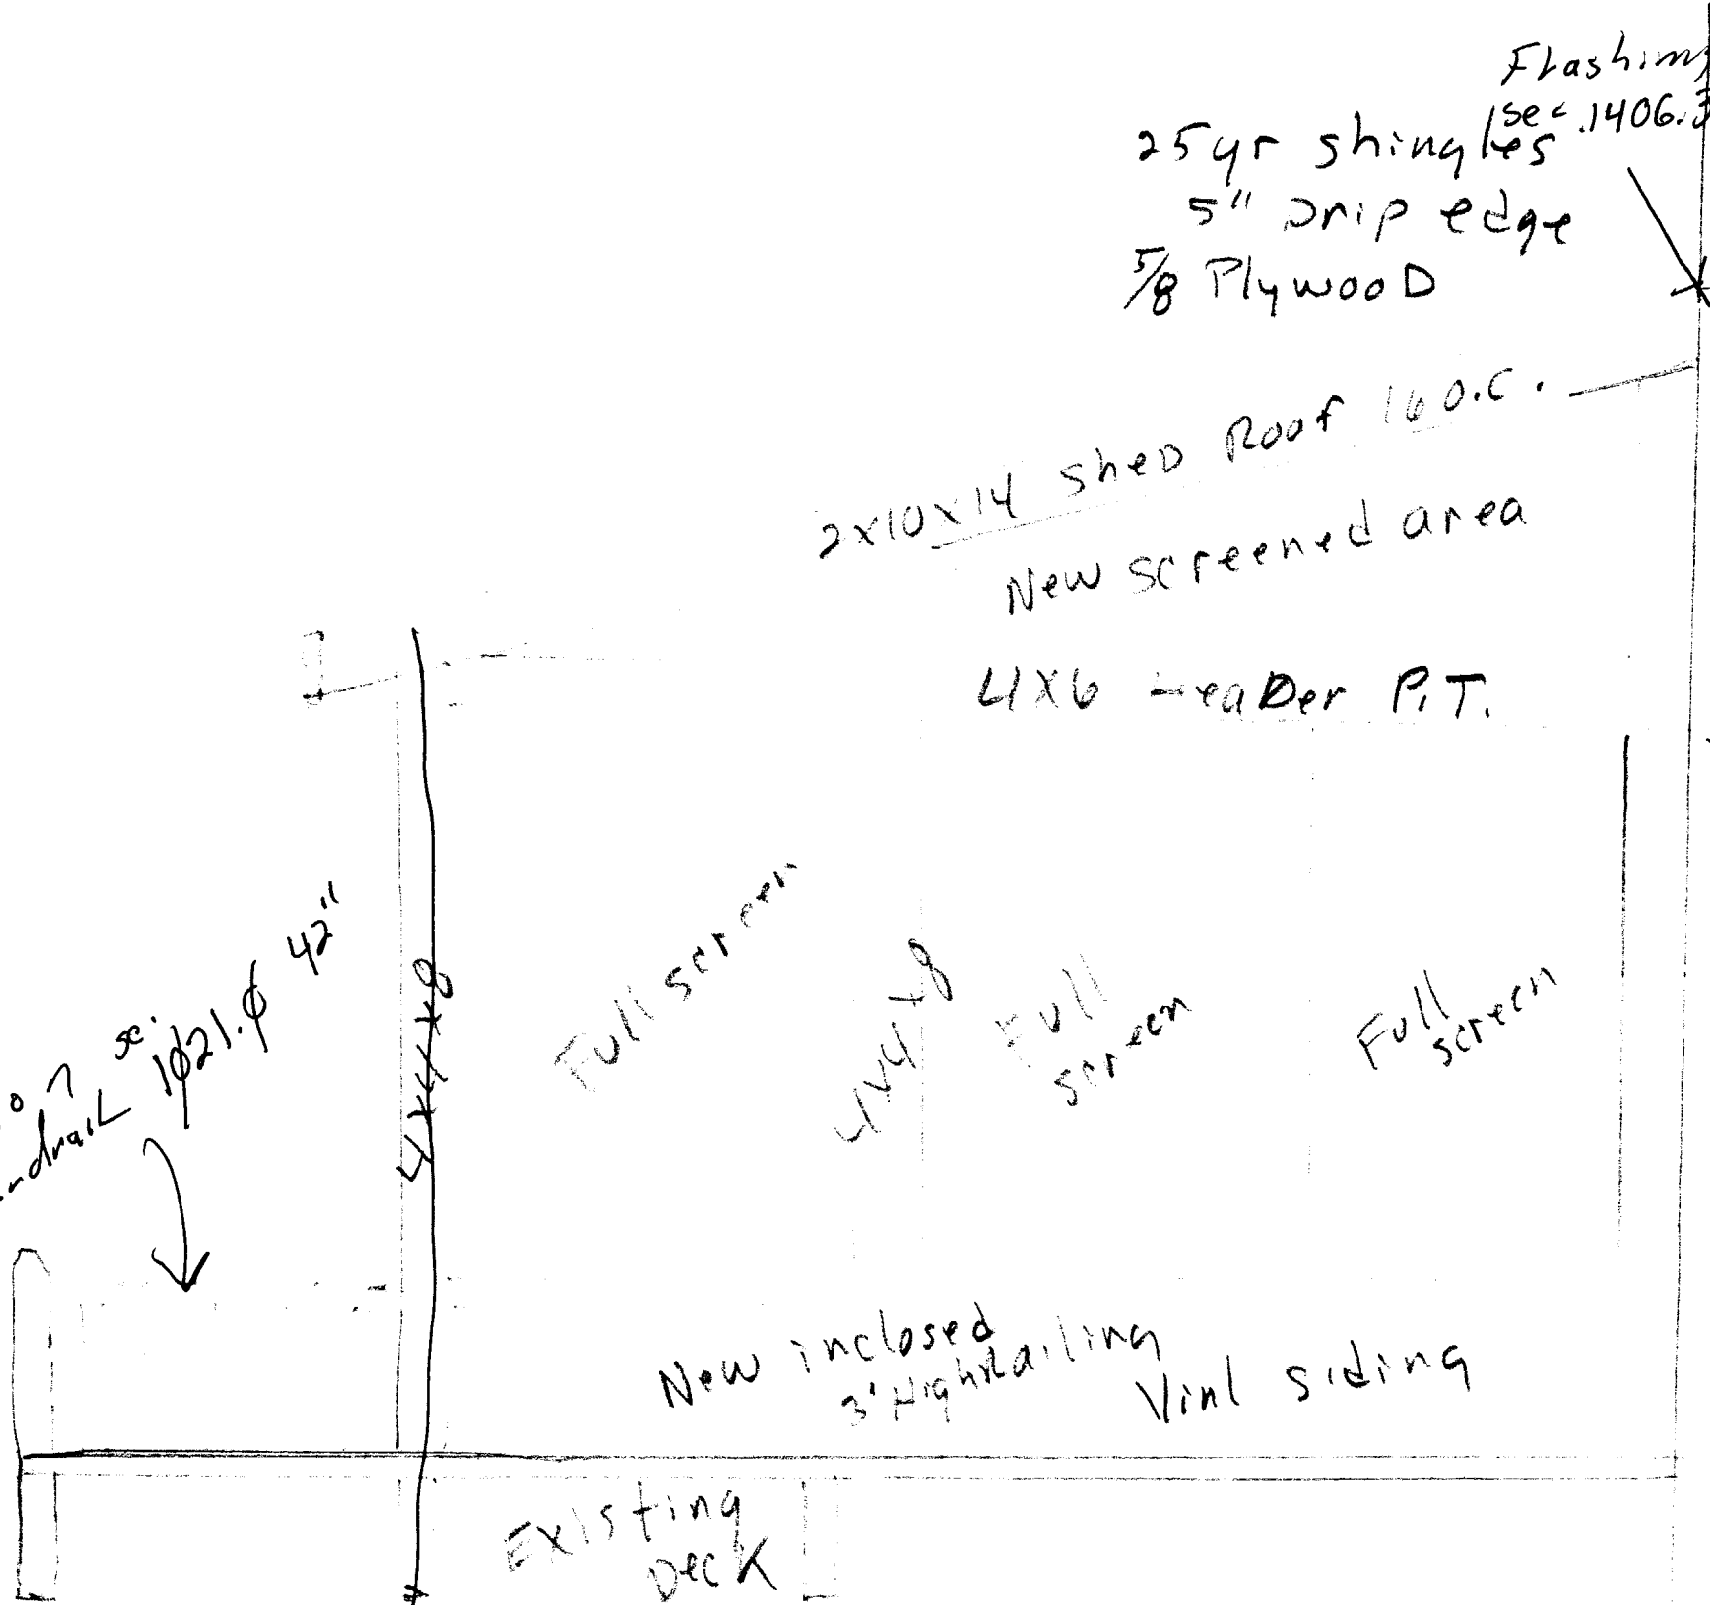 Flashing
sec. 1406.3
25yr shingles
5" Drip edge
5/8 PlywooD
2x10x14 sheD Roof 16 O.C.
New screened area
4x6 HeaDer P.T.
42"
sec. 1021.0
4x4x8
Full screen
4x4x8
Full
screen
Full
screen
New inclosed
3' High Railing
Vinl siding
Existing
DecK